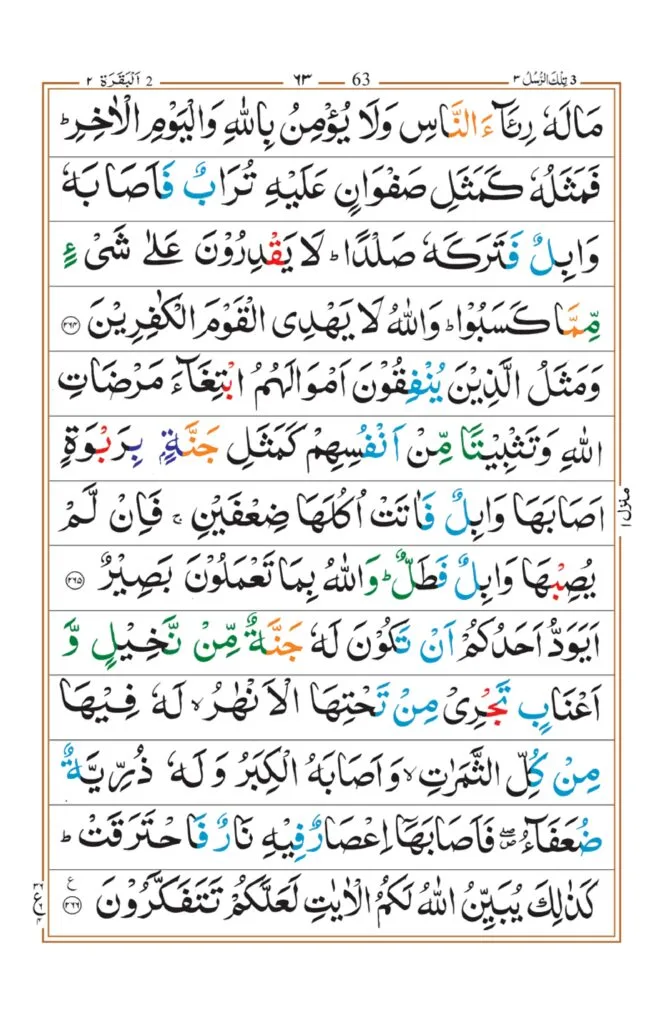 3 تِلْكَ الرُّسُلُ ٣ 63 ٦٣ 2 اَلْبَقَرَة ٢
مَالَهٗ رِئَآءَ النَّاسِ وَلَا يُؤْمِنُ بِاللّٰهِ وَالْيَوْمِ الْاٰخِرِ ؕ
فَمَثَلُهٗ كَمَثَلِ صَفْوَانٍ عَلَيْهِ تُرَابٌ فَاَصَابَهٗ
وَابِلٌ فَتَرَكَهٗ صَلْدًا ؕ لَا يَقْدِرُوْنَ عَلٰى شَىْءٍ
مِّمَّا كَسَبُوْا ؕ وَاللّٰهُ لَا يَهْدِى الْقَوْمَ الْكٰفِرِيْنَ ۝٢٦٤
وَمَثَلُ الَّذِيْنَ يُنْفِقُوْنَ اَمْوَالَهُمُ ابْتِغَآءَ مَرْضَاتِ
اللّٰهِ وَتَثْبِيْتًا مِّنْ اَنْفُسِهِمْ كَمَثَلِ جَنَّةٍۭ بِرَبْوَةٍ
اَصَابَهَا وَابِلٌ فَاٰتَتْ اُكُلَهَا ضِعْفَيْنِ ۚ فَاِنْ لَّمْ
يُصِبْهَا وَابِلٌ فَطَلٌّ ؕ وَاللّٰهُ بِمَا تَعْمَلُوْنَ بَصِيْرٌ ۝٢٦٥
اَيَوَدُّ اَحَدُكُمْ اَنْ تَكُوْنَ لَهٗ جَنَّةٌ مِّنْ نَّخِيْلٍ وَّ
اَعْنَابٍ تَجْرِىْ مِنْ تَحْتِهَا الْاَنْهٰرُ ۙ لَهٗ فِيْهَا
مِنْ كُلِّ الثَّمَرٰتِ ۙ وَاَصَابَهُ الْكِبَرُ وَلَهٗ ذُرِّيَّةٌ
ضُعَفَآءُ ۖ فَاَصَابَهَآ اِعْصَارٌ فِيْهِ نَارٌ فَاحْتَرَقَتْ ؕ
كَذٰلِكَ يُبَيِّنُ اللّٰهُ لَكُمُ الْاٰيٰتِ لَعَلَّكُمْ تَتَفَكَّرُوْنَ ۝٢٦٦
منزل ١